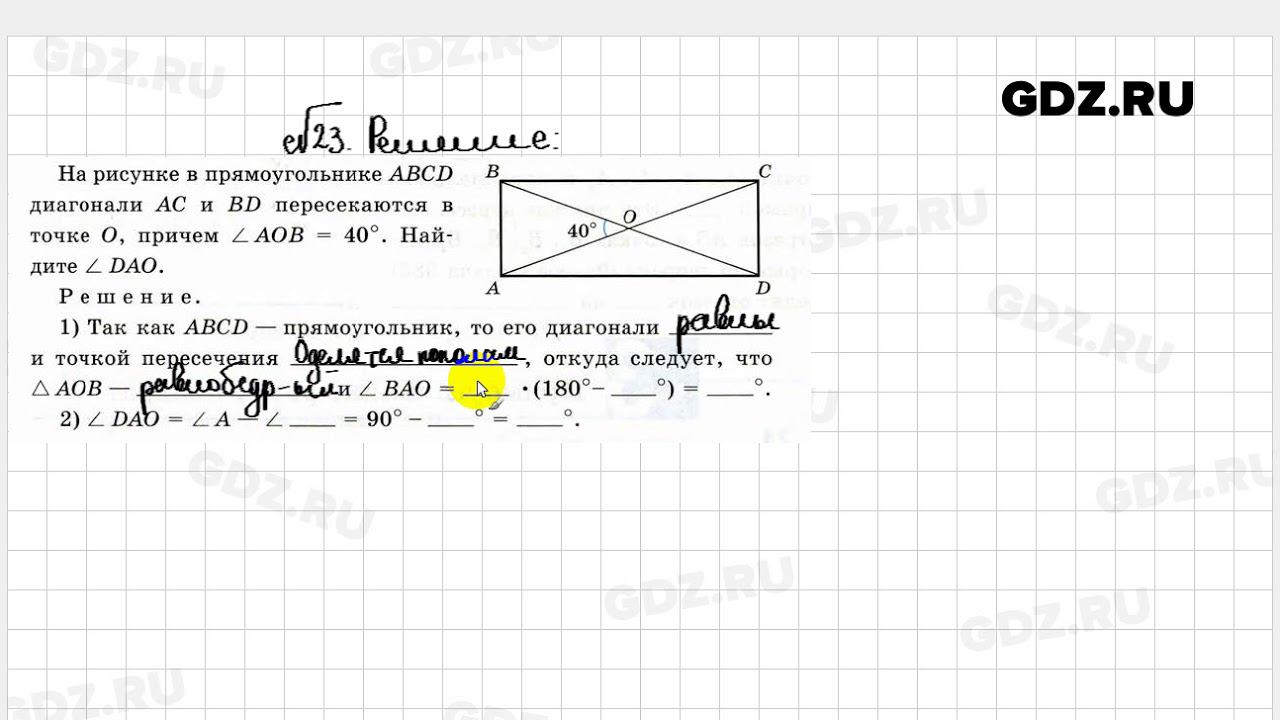 GDZ.RU
GDZ.RU
GDZ.RU
№23. Решение:
На рисунке в прямоугольнике ABCD
диагонали AC и BD пересекаются в
точке O, причем ∠ AOB = 40°. Най-
дите ∠ DAO.
B
C
O
40°
A
D
GDZ.RU
GDZ.RU
Решение.
1) Так как ABCD — прямоугольник, то его диагонали равны
и точкой пересечения O делятся пополам, откуда следует, что
△ AOB — равнобедр-ый и ∠ BAO = ____ · (180° – ____°) = ____°.
2) ∠ DAO = ∠ A — ∠ ____ = 90° – ____° = ____°.
GDZ.RU
GDZ.RU
GDZ.RU
GDZ.RU
GDZ.RU
GDZ.RU